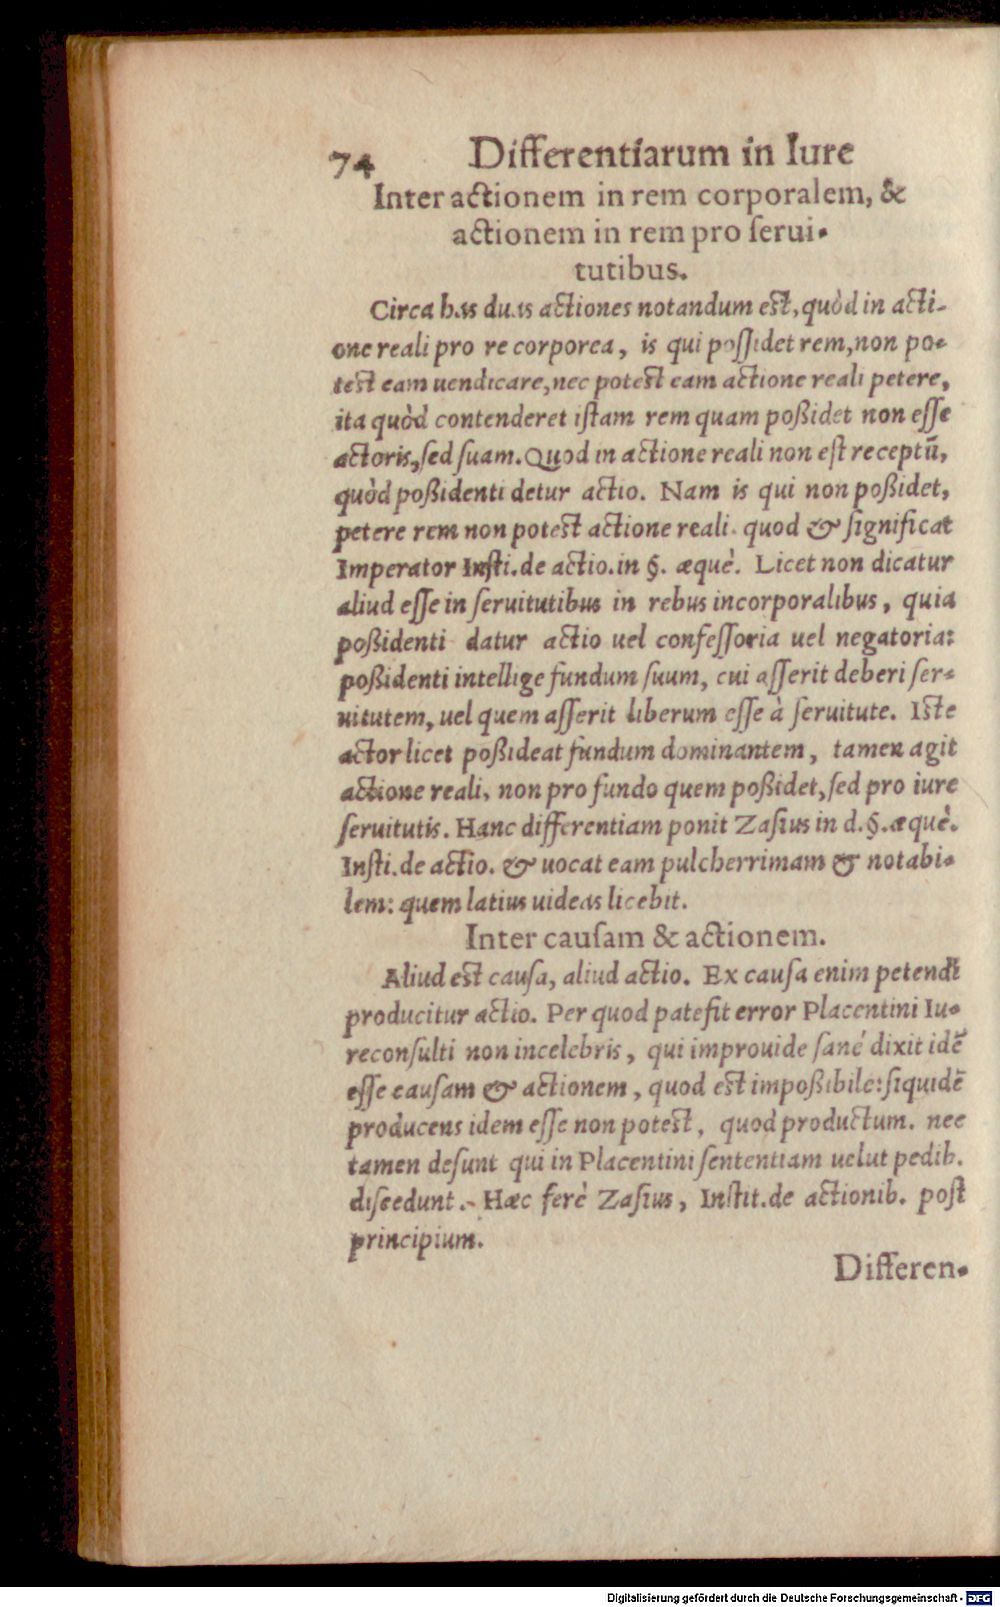 74 Differentiarum in Iure
Inter actionem in rem corporalem, &
actionem in rem pro ſerui-
tutibus.
Circa has duas actiones notandum est, quòd in acti-
one reali pro re corporea, is qui poſſidet rem, non po-
test eam uendicare, nec potest eam actione reali petere,
ita quòd contenderet iſtam rem quam poßidet non eſſe
actoris, ſed ſuam. Quod in actione reali non eſt receptū,
quòd poßidenti detur actio. Nam is qui non poßidet,
petere rem non potest actione reali. quod & ſignificat
Imperator Inſti. de actio. in §. æquè. Licet non dicatur
aliud eſſe in ſeruitutibus in rebus incorporalibus, quia
poßidenti datur actio uel confeſſoria uel negatoria:
poßidenti intellige fundum ſuum, cui aſſerit deberi ſer-
uitutem, uel quem aſſerit liberum eſſe à ſeruitute. Iste
actor licet poßideat fundum dominantem, tamen agit
actione reali, non pro fundo quem poßidet, ſed pro iure
ſeruitutis. Hanc differentiam ponit Zaſius in d. §. æquè.
Inſti. de actio. & uocat eam pulcherrimam & notabi-
lem: quem latius uideas licebit.
Inter cauſam & actionem.
Aliud est cauſa, aliud actio. Ex cauſa enim petendi
producitur actio. Per quod patefit error Placentini Iu-
reconſulti non incelebris, qui improuide ſanè dixit idē
eſſe cauſam & actionem, quod est impoßibile: ſiquidē
producens idem eſſe non potest, quod productum. nec
tamen deſunt qui in Placentini ſententiam uelut pedib.
diſcedunt. Hæc ferè Zaſius, Inſtit. de actionib. poſt
principium.
Differen-
Digitalisierung gefördert durch die Deutsche Forschungsgemeinschaft - DFG